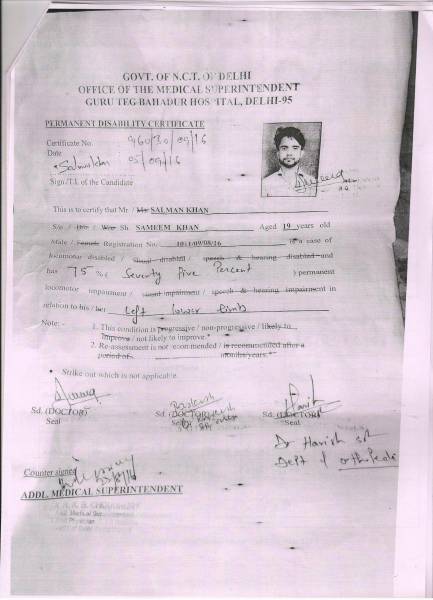 GOVT. OF N.C.T. OF DELHI
OFFICE OF THE MEDICAL SUPERINTENDENT
GURU TEG BAHADUR HOSPITAL, DELHI-95
PERMANENT DISABILITY CERTIFICATE
Certificate No. 960/30/09/16
Date 05/09/16
Salmankhan
Sign./T.I. of the Candidate
This is to certify that Mr / Ms SALMAN KHAN
S/o / D/o / W/o Sh SAMEEM KHAN Aged 19 years old
Male / Female Registration No. 1011/09/08/16 is a case of
locomotor disabled / visual disabled / speech & hearing disabled and
has 75 % ( Seventy Five Percent ) permanent
locomotor impairment / visual impairment / speech & hearing impairment in
relation to his / her Left lower limb
Note: -
1. This condition is progressive / non-progressive / likely to
improve / not likely to improve.*
2. Re-assessment is not recommended / is recommended after a
period of months/years.*
* Strike out which is not applicable.
Sd. (DOCTOR) Sd. (DOCTOR) Sd. (DOCTOR)
Seal Seal Seal
Dr Harish
Dept of orthopedic
Counter signed
ADDL. MEDICAL SUPERINTENDENT